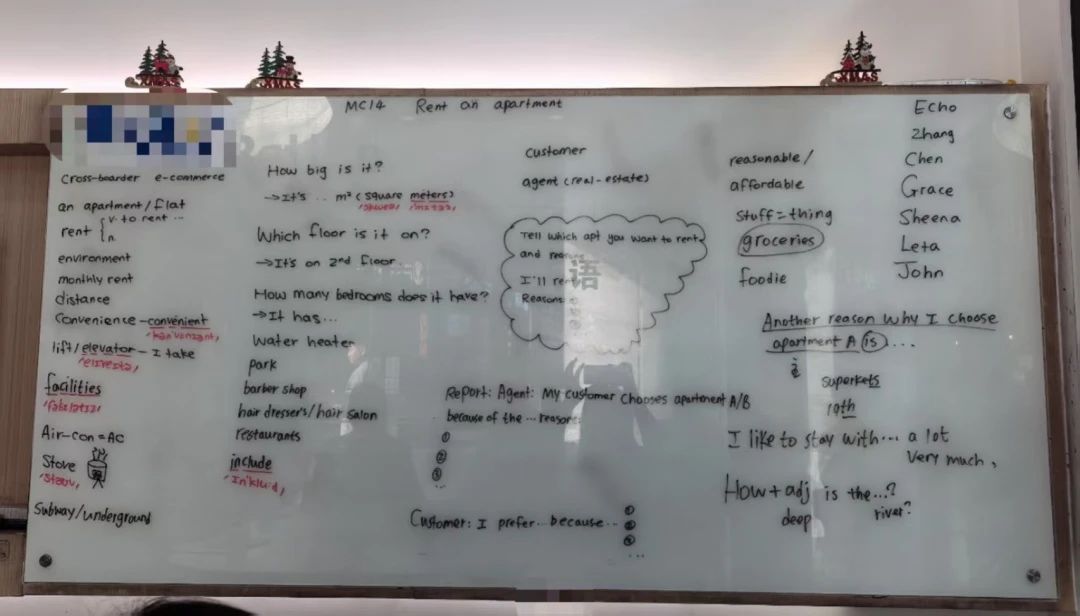 XMAS
XMAS
XMAS
MC14 Rent an apartment
cross-boarder e-commerce
an apartment/flat
rent { v. to rent ...
n.
environment
monthly rent
distance
Convenience-convenient
lift/elevator-I take
facilities
Air-con=AC
Stove
Subway/underground
How big is it?
→It's .. m² (square meters)
Which floor is it on?
→It's on 2nd floor..
How many bedrooms does it have?
→It has...
Water heater
park
barber shop
hair dresser's/hair salon
restaurants
include
customer
agent (real-estate)
Tell which apt you want to rent
and
I'll
Reasons:
语
Report: Agent: My customer chooses apartment A/B
because of the ... reasons:
①
②
③
...
Customer: I prefer... because...
①
②
③
...
reasonable/
affordable
stuff=thing
groceries
foodie
Another reason why I choose
apartment A is ....
superkets
10th
I like to stay with... a lot
very much,
How+adj is the...?
deep river?
Echo
Zhang
Chen
Grace
Sheena
Leta
John